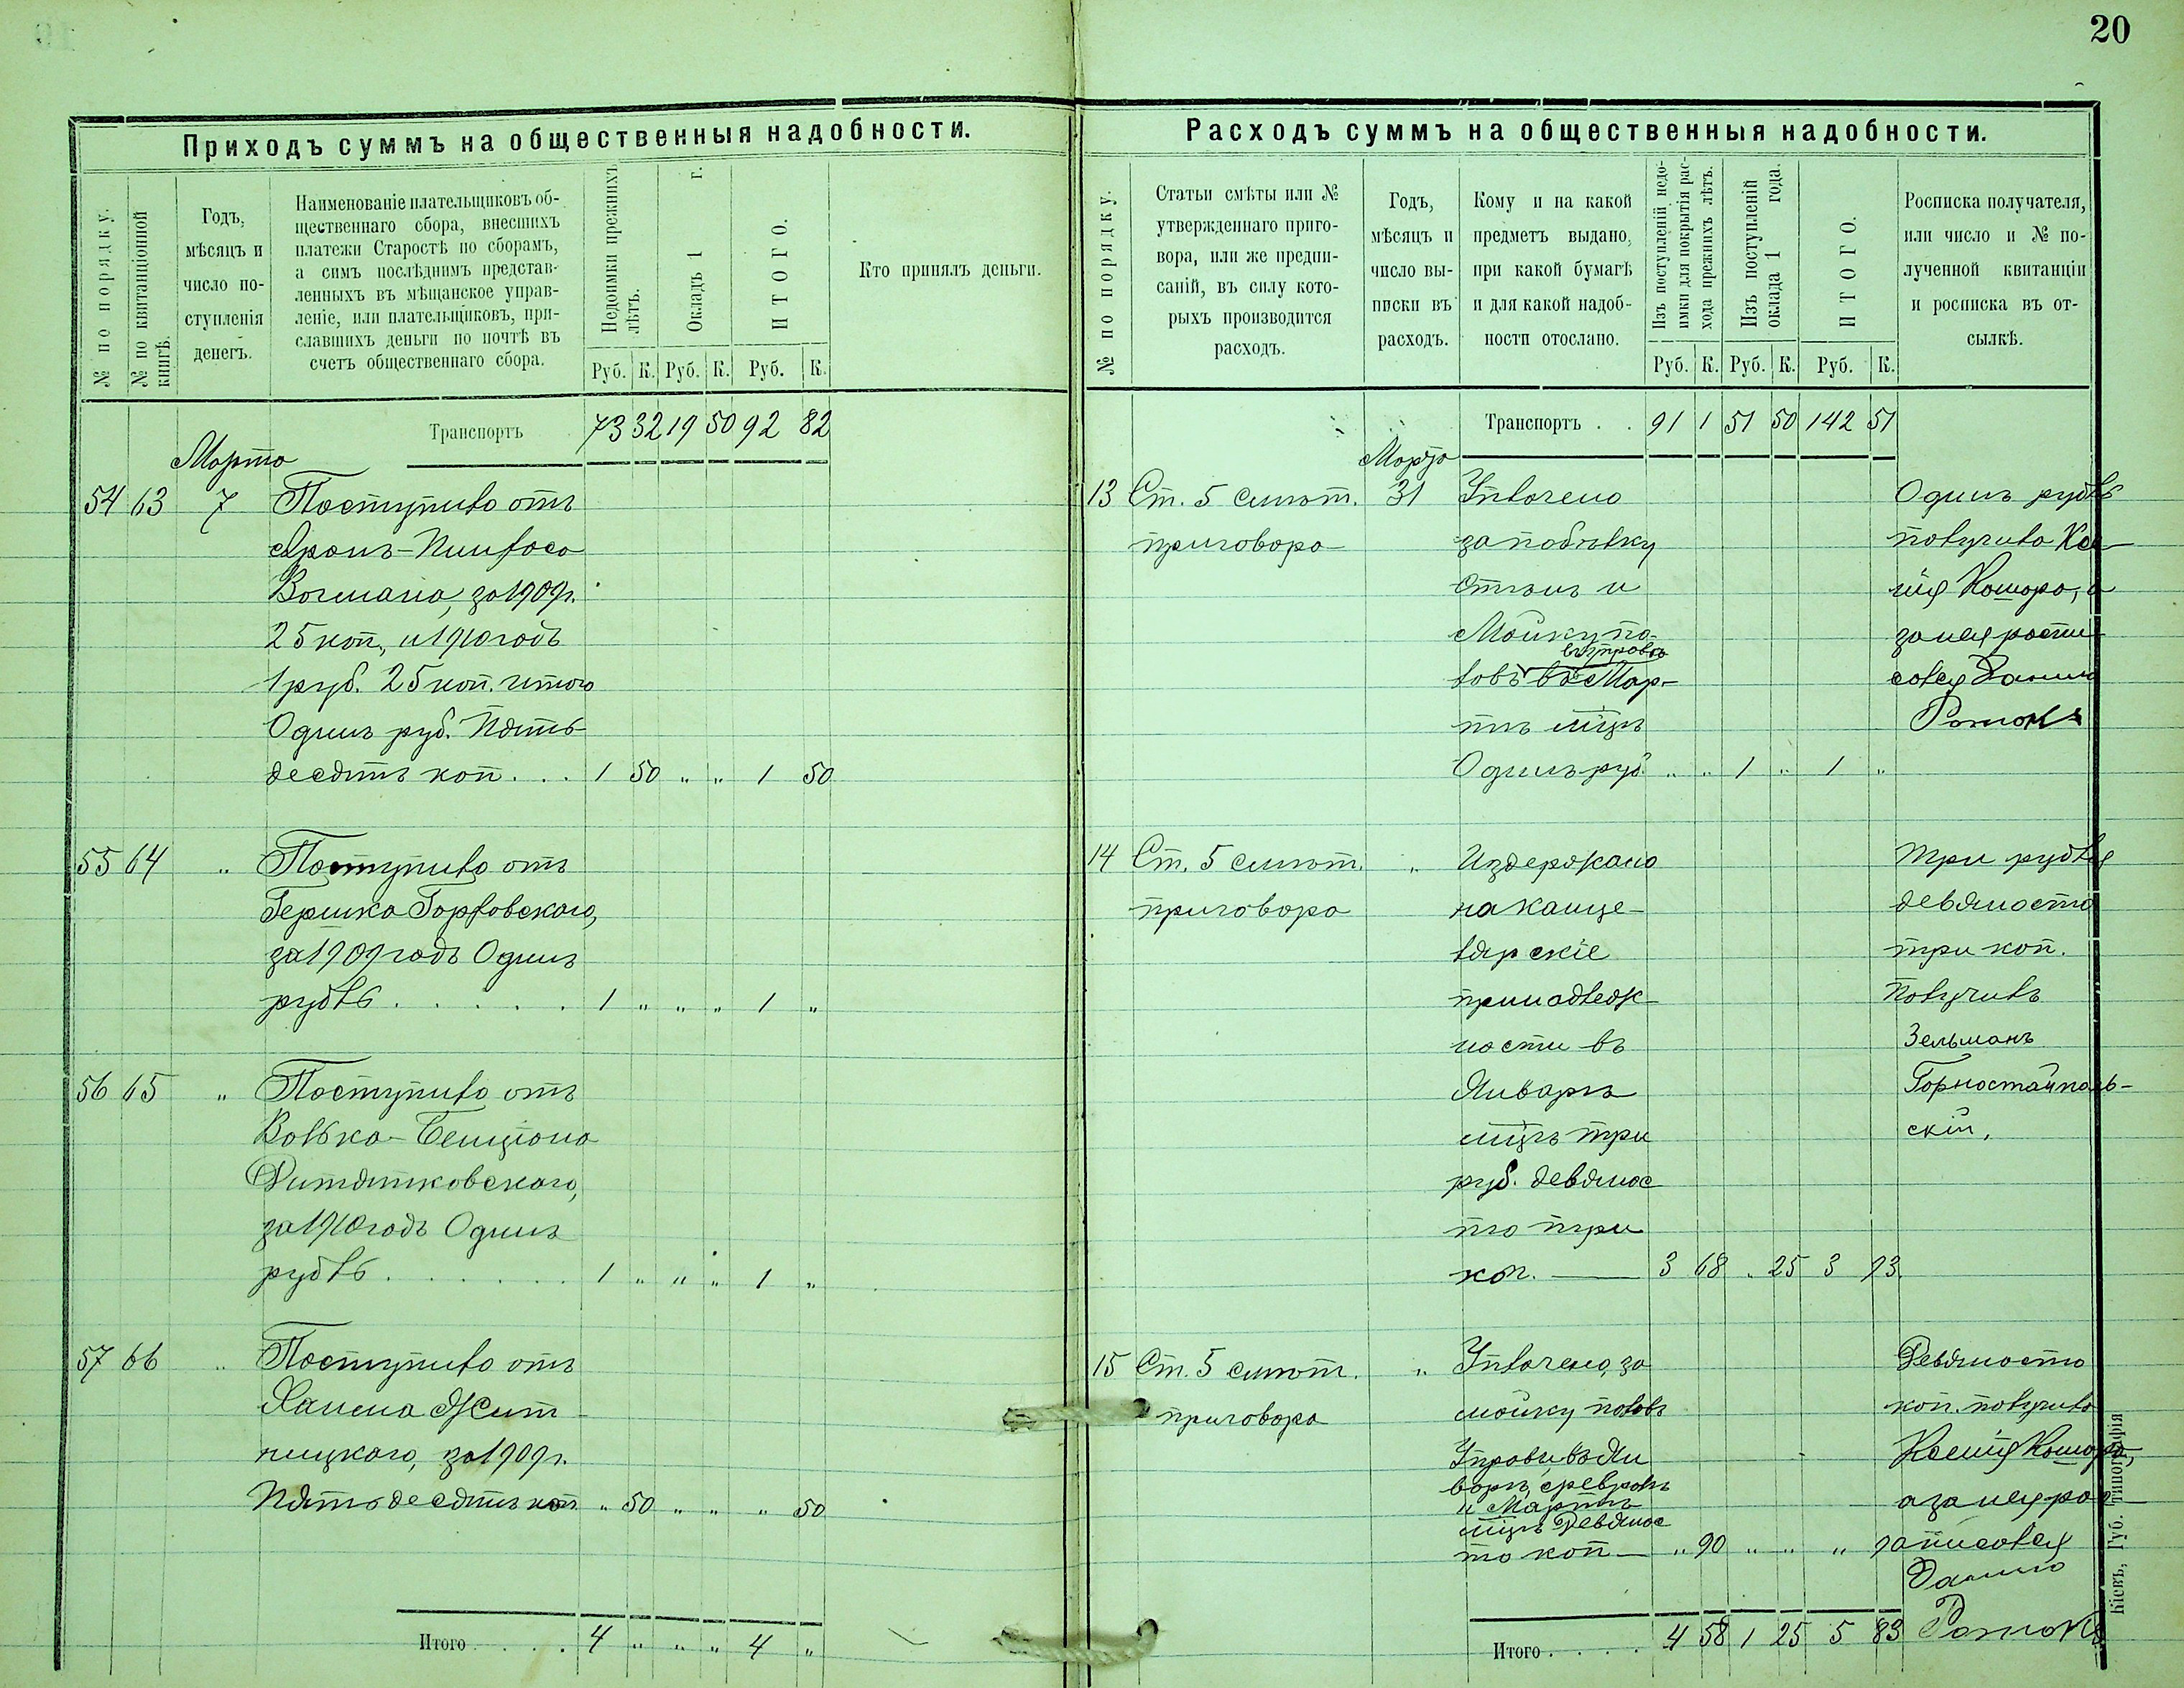 20
Приходъ суммъ на общественныя надобности.
№ по порядку.
№ по квитанціонной книгѣ.
Годъ,
мѣсяцъ и
число по-
ступленія
денегъ.
Наименованіе плательщиковъ об-
щественнаго сбора, внесшихъ
платежи Старостѣ по сборамъ,
а симъ послѣднимъ представ-
ленныхъ въ мѣщанское управ-
леніе, или плательщиковъ, при-
славшихъ деньги по почтѣ въ
счетъ общественнаго сбора.
Недоимки прежнихъ
лѣтъ.
Окладъ 1 г.
ИТОГО.
Руб. К. Руб. К. Руб. К.
Кто принялъ деньги.
Транспортъ 73 32 19 50 92 82
Марта
54 63 7 Поступило отъ
Аронъ-Пинхаса
за 1909г.
25 коп, и 1910 годъ
1 руб. 25 коп. итого
Одинъ руб. Пять-
десятъ коп... 1 50 „ „ 1 50
55 64 „ Поступило отъ
Гершка Горловскаго,
за 1909 годъ Одинъ
рубль...... 1 „ „ „ 1 „
56 65 „ Поступило отъ
Волька-Бенціона
Дитятковскаго,
за 1910 годъ Одинъ
рубль....... 1 „ „ „ 1 „
57 66 „ Поступило отъ
Жит-
ницкаго, за 1909г.
Пятьдесятъ коп. „ 50 „ „ „ 50
Итого.... 4 „ „ „ 4 „
Расходъ суммъ на общественныя надобности.
№ по порядку.
Статьи смѣты или №
утвержденнаго приго-
вора, или же предпи-
саній, въ силу кото-
рыхъ производится
расходъ.
Годъ,
мѣсяцъ и
число вы-
писки въ
расходъ.
Кому и на какой
предметъ выдано,
при какой бумагѣ
и для какой надоб-
ности отослано.
Изъ поступленій недо-
имки для покрытія рас-
хода прежнихъ лѣтъ.
Изъ поступленій
оклада 1 года.
ИТОГО.
Руб. К. Руб. К. Руб. К.
Росписка получателя,
или число и № по-
лученной квитанціи
и росписка въ от-
сылкѣ.
Транспортъ.. 91 1 51 50 142 51
Марта
13 Ст. 5 смѣт. 31 Уплачено
приговора за побѣлку
стѣнъ и
Мойку по-
въ управѣ
ловъ въ Мар-
тѣ мцѣ
Одинъ руб. „ „ 1 „ 1 „
Одинъ рубль
получила Ксе-
нія Комара, а
за нея распи-
сался Данило
14 Ст. 5 смѣт. „ Издержано
приговора на канце-
лярскіе
принадлеж-
ности въ
Январѣ
мцѣ три
руб. девянос
то три
коп. — 3 68 „ 25 3 93
Три рубля
девяносто
три коп.
Получилъ
Зельманъ
Горностайполь-
скій.
15 Ст. 5 смѣт. „ Уплачено, за
приговора мойку половъ
Управы въ Ян
варѣ, февралѣ
и Мартѣ
мцѣ Девянос
то коп — „ 90 „ „ „ 90
Девяносто
коп. получила
Ксенія Комара,
а за нея рос-
писался
Данило
Итого.... 4 58 1 25 5 83
Кіевъ, Губ. типографія